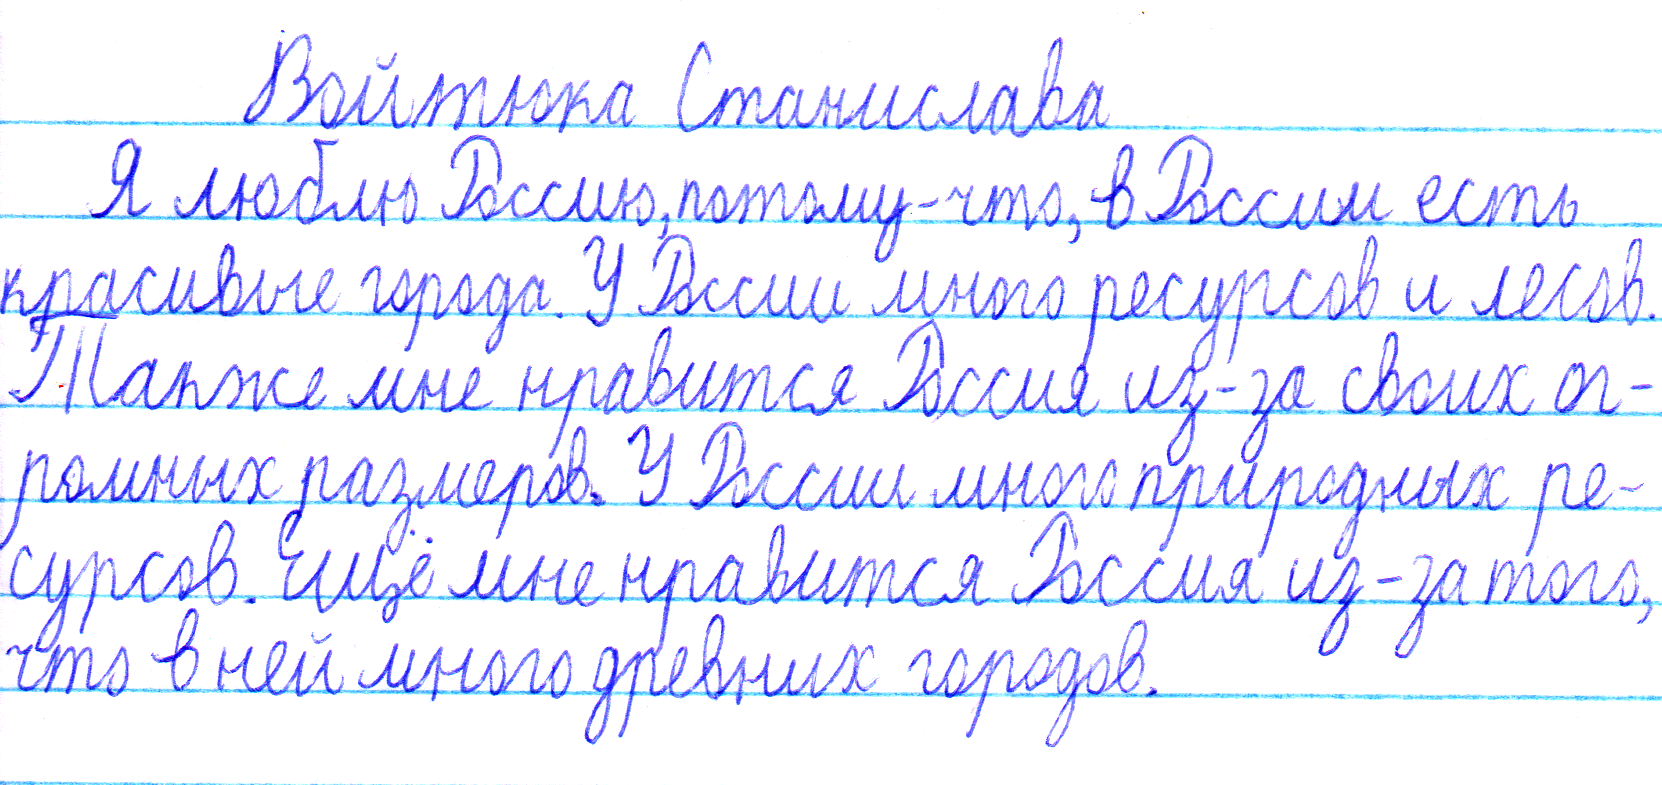 Войтюка Станислава
Я люблю Россию, потому-что, в России есть
красивые города. У России много ресурсов и лесов.
Также мне нравится Россия из-за своих ог-
ромных размеров. У России много природных ре-
сурсов. Ищё мне нравится Россия из-за того,
что в ней много древних городов.